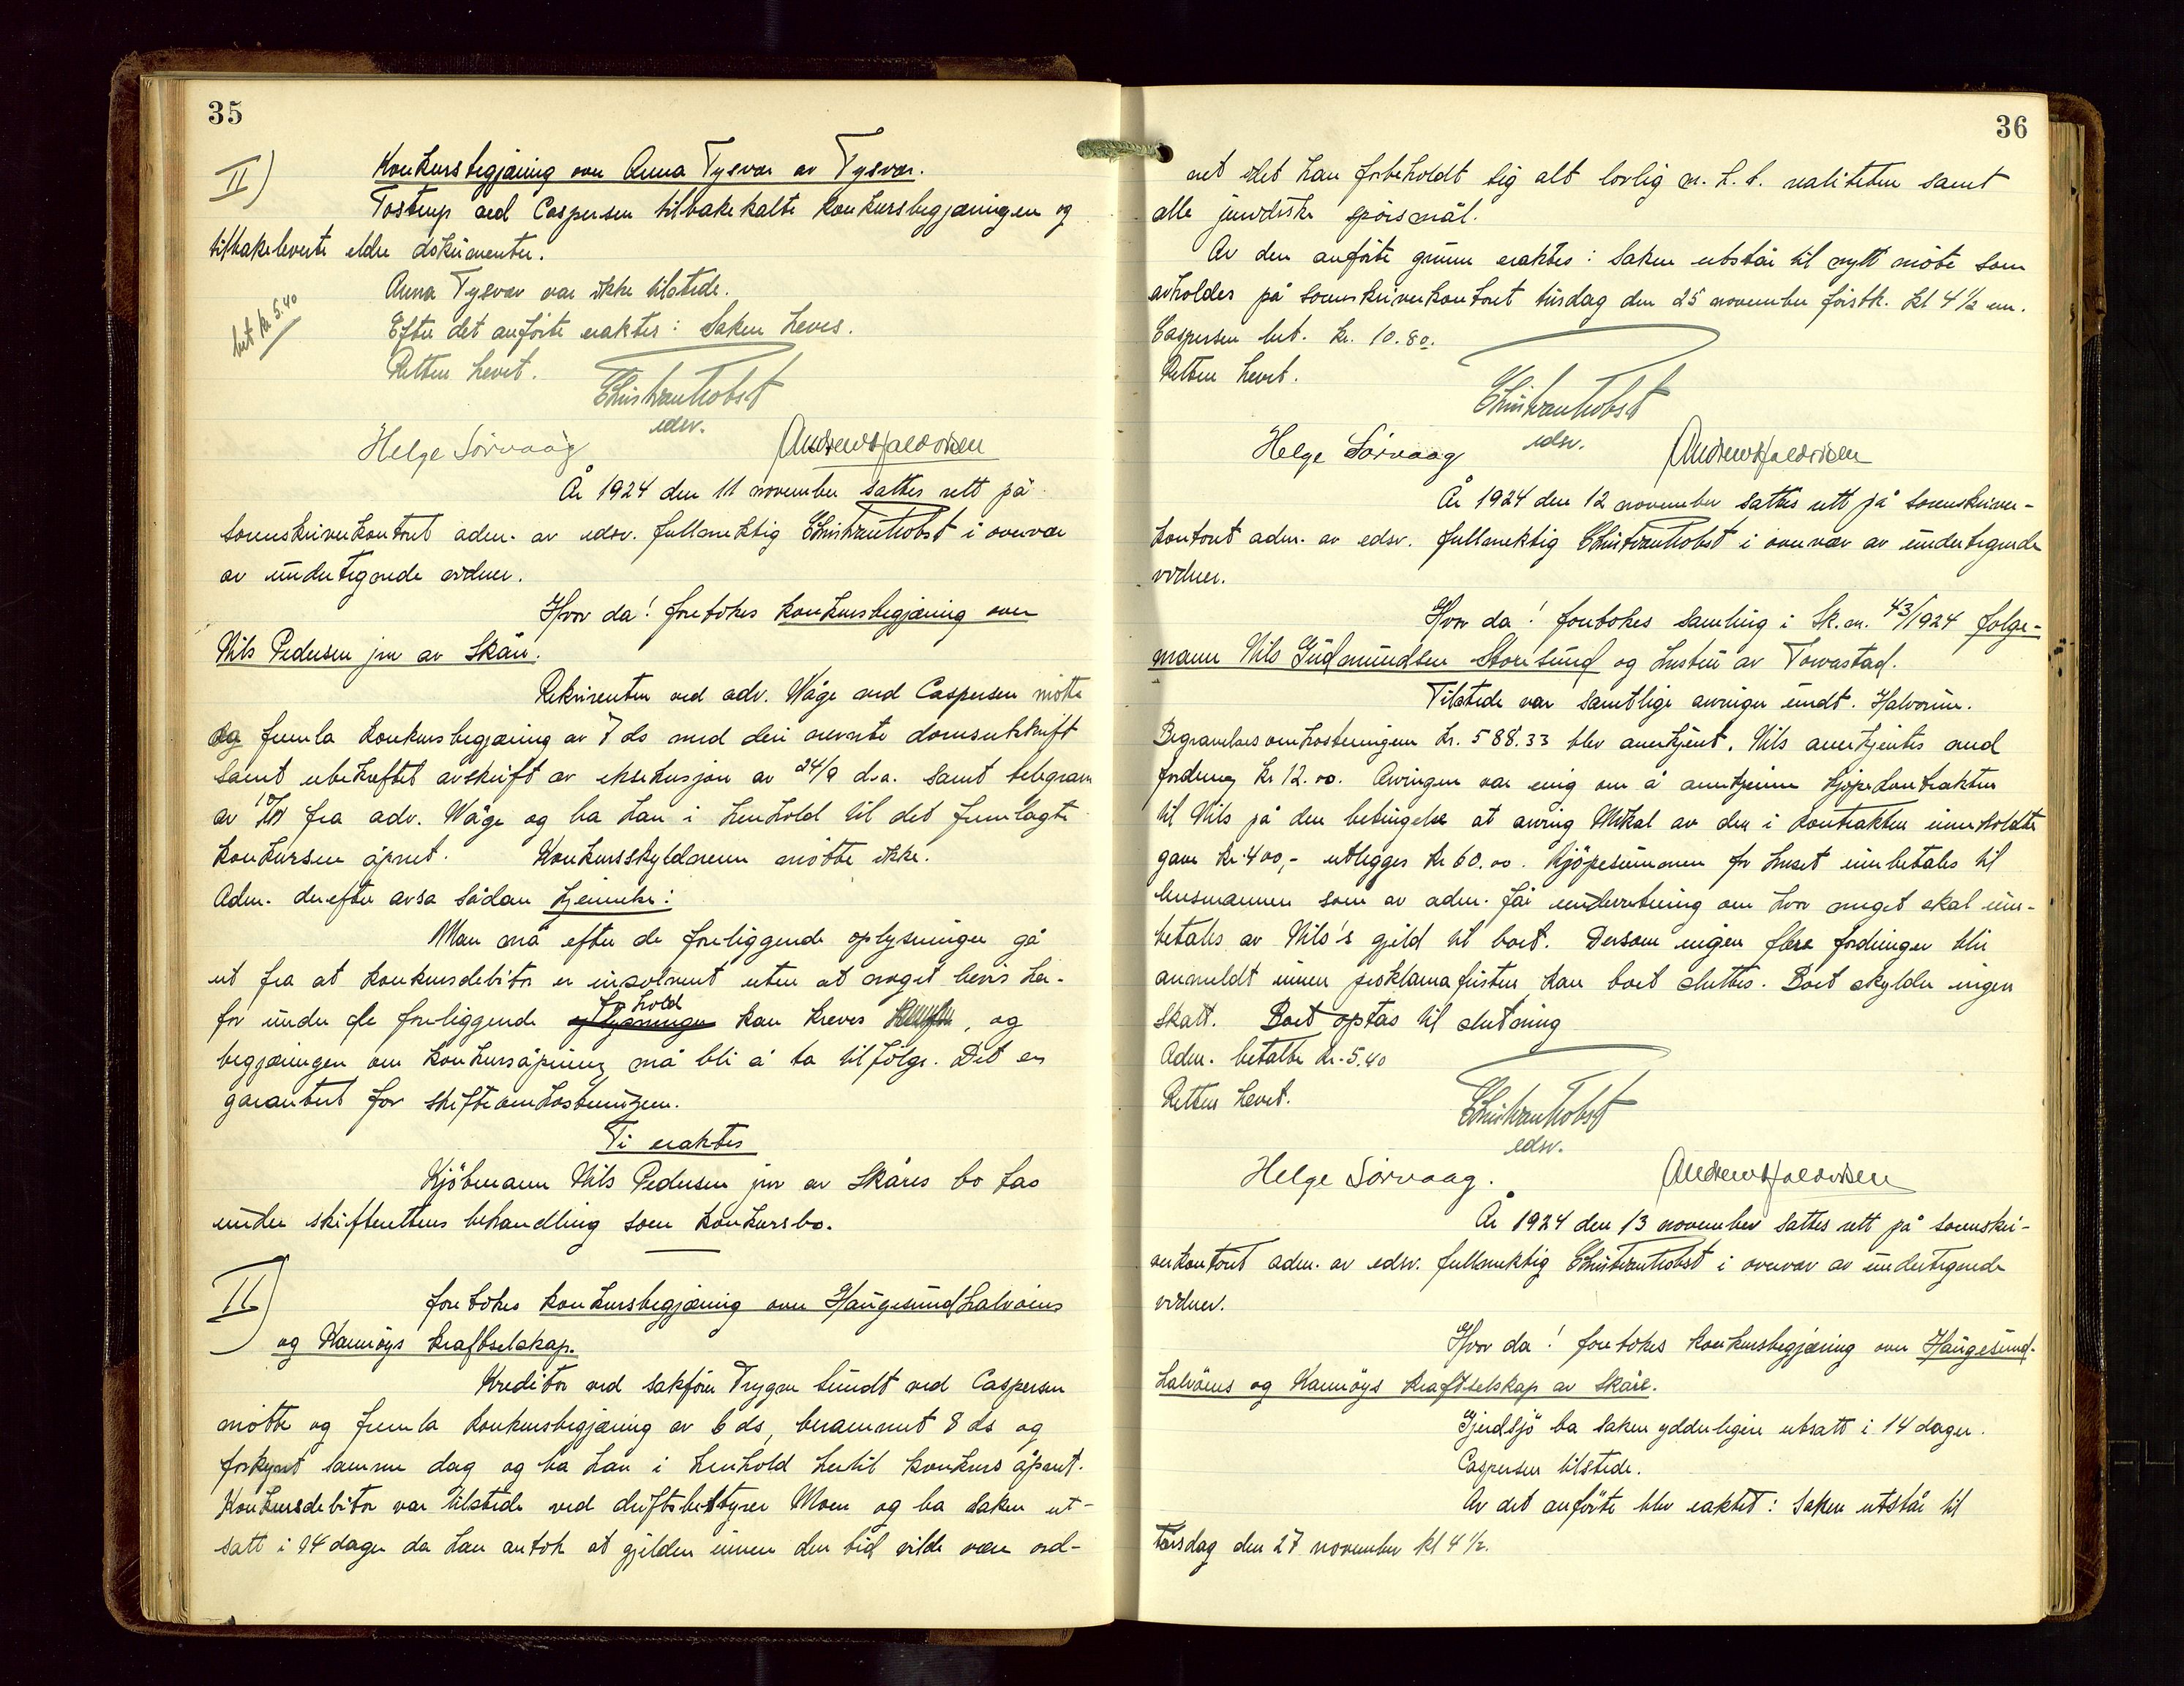 35
II)
Konkursbegjæring over Anna Tysvær av Tysvær.
Tostrup ved Caspersen tilbakekalte konkursbegjæringen og
tilbakeleverte eldre dokumenter.
Anna Tysvær var ikke tilstede.
bet kr 5.40
Efter det anförte eraktes: Saken heves.
Retten hevet.
Christian Trobst
edsv.
Helge Sörvaag
Andrew Halvorsen
År 1924 den 11 november sattes rett på
sorenskriverkontoret adm. av edsv. fullmektig Christian Trobst i overvær
av undertegnede vidner.
Hvor da! foretokes konkursbegjæring over
Nils Pedersen jnr av Skåre.
Rekvirenten ved adv. Våge ved Caspersen mötte
og fremla konkursbegjæring av 7 ds med deri nevnte domsutskrift
samt ubekreftet avskrift av eksekusjon av 24/9 d.a. samt telegram
av 10/11 fra adv. Våge og ba han i henhold til det fremlagte
konkursen åpnet. Konkursskyldneren mötte ikke.
Adm. derefter avsa sådan kjennelse:
Man må efter de foreliggende oplysninger gå
ut fra at konkursdebitor er insolvent uten at noget bevis her-
for under de foreliggende forhold kan kreves, og
begjæringen om konkursåpning må bli å ta tilfölge. Det er
garantert for skifteomkostningene.
Ti eraktes
Kjöbmann Nils Pedersen jnr av Skåres bo tas
under skifterettens behandling som konkursbo.
II)
foretokes konkursbegjæring over Haugesundhalvöens
og Karmöys kraftselskap.
Kreditor ved sakförer Trygve Sundt ved Caspersen
mötte og fremla konkursbegjæring av 6 ds, berammet 8 ds og
forkynt samme dag og ba han i henhold hertil konkurs åpnet.
Konkursdebitor var tilstede ved driftsbestyrer Moen og ba saken ut-
satt i 14 dager da han antok at gjelden innen den tid vilde være ord-
36
net idet han forbeholdt sig alt lovlig m. h. t. realiteten samt
alle juridiske spörsmål.
Av den anförte grunn eraktes: Saken utstår til nytt möte som
avholdes på sorenskriverkontoret tirsdag den 25 november förstk. kl 4 1/2 em.
Caspersen bet. kr. 10.80.
Retten hevet.
Christian Trobst
edsv.
Helge Sörvaag
Andrew Halvorsen
År 1924 den 12 november sattes rett på sorenskriver-
kontoret adm. av edsv. fullmektig Christian Trobst i overvær av undertegnede
vidner.
Hvor da! foretokes samling i Sk.nr. 43/1924 folge-
mann Nils Gudmundsen Storesund og hustru av Torvastad.
Tilstede var samtlige arvinger undt. Halvorine.
Begravelsesomkostningene kr. 588.33 blev anerkjent. Nils anerkjentes med
fordring kr 12.00. Arvingene var enig om å anerkjenne kjöpekontrakten
til Nils på den betingelse at arving Mikal av den i kontrakten inneholdte
gave kr. 400,- utlegges kr 60.00. Kjöpesummen for huset innbetales til
lensmannen som av adm. får underretning om hvor meget skal inn-
betales av Nils's gjeld til boet. Dersom ingen flere fordringer blir
anmeldt innen proklamafristen kan boet sluttes. Boet skylder ingen
skatt. Boet optas til slutning
Adm. betalte kr. 5.40
Retten hevet.
Christian Trobst
edsv.
Helge Sörvaag.
Andrew Halvorsen
År 1924 den 13 november sattes rett på sorenskri-
verkontoret adm. av edsv. fullmektig Christian Trobst i overvær av undertegnede
vidner.
Hvor da! foretokes konkursbegjæring over Haugesund-
halvöens og Karmöys kraftselskap av Skåre.
Gjerdsjö ba saken ydderligere utsatt i 14 dager.
Caspersen tilstede.
Av det anförte blev eraktet: Saken utstår til
torsdag den 27 november kl 4 1/2.